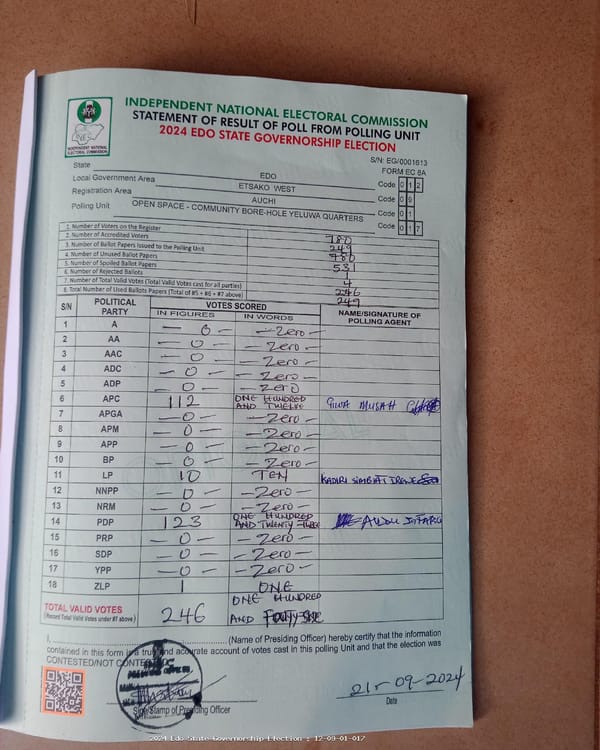 INDEPENDENT NATIONAL ELECTORAL COMMISSION
STATEMENT OF RESULT OF POLL FROM POLLING UNIT
2024 EDO STATE GOVERNORSHIP ELECTION
INDEPENDENT NATIONAL ELECTORAL COMMISSION
S/N: EG/0001613
FORM EC 8A
State EDO Code 0 1 2
Local Government Area ETSAKO WEST Code 0 9
Registration Area AUCHI Code 0 1
Polling Unit OPEN SPACE - COMMUNITY BORE-HOLE YELUWA QUARTERS Code 0 1 7
1. Number of Voters on the Register 780
2. Number of Accredited Voters 249
3. Number of Ballot Papers Issued to the Polling Unit 780
4. Number of Unused Ballot Papers 531
5. Number of Spoiled Ballot Papers 1
6. Number of Rejected Ballots
7. Number of Total Valid Votes (Total Valid Votes cast for all parties) 246
8. Total Number of Used Ballots Papers (Total of #5 + #6 + #7 above) 249
S/N POLITICAL PARTY VOTES SCORED NAME/SIGNATURE OF POLLING AGENT
IN FIGURES IN WORDS
1 A — 0 — — Zero —
2 AA — 0 — — Zero —
3 AAC — 0 — — Zero —
4 ADC — 0 — — Zero —
5 ADP — 0 — — Zero
6 APC 112 ONE HUNDRED AND TWELVE MUSAH
7 APGA — 0 — — Zero —
8 APM — 0 — — Zero —
9 APP — 0 — — Zero —
10 BP — 0 — — Zero —
11 LP 10 TEN KADIRI
12 NNPP — 0 — — Zero —
13 NRM — 0 — — Zero —
14 PDP 123 ONE HUNDRED AND TWENTY THREE
15 PRP — 0 — — Zero —
16 SDP — 0 — — Zero —
17 YPP — 0 — — Zero —
18 ZLP 1 ONE
TOTAL VALID VOTES 246 ONE HUNDRED
(Record Total Valid Votes under #7 above) AND
I, (Name of Presiding Officer) hereby certify that the information
contained in this form is a true and accurate account of votes cast in this polling Unit and that the election was
CONTESTED/NOT CONTESTED
21-09-2024
Sign Stamp of Presiding Officer
Date
2024 Edo State Governorship Election : 12-09-01-017